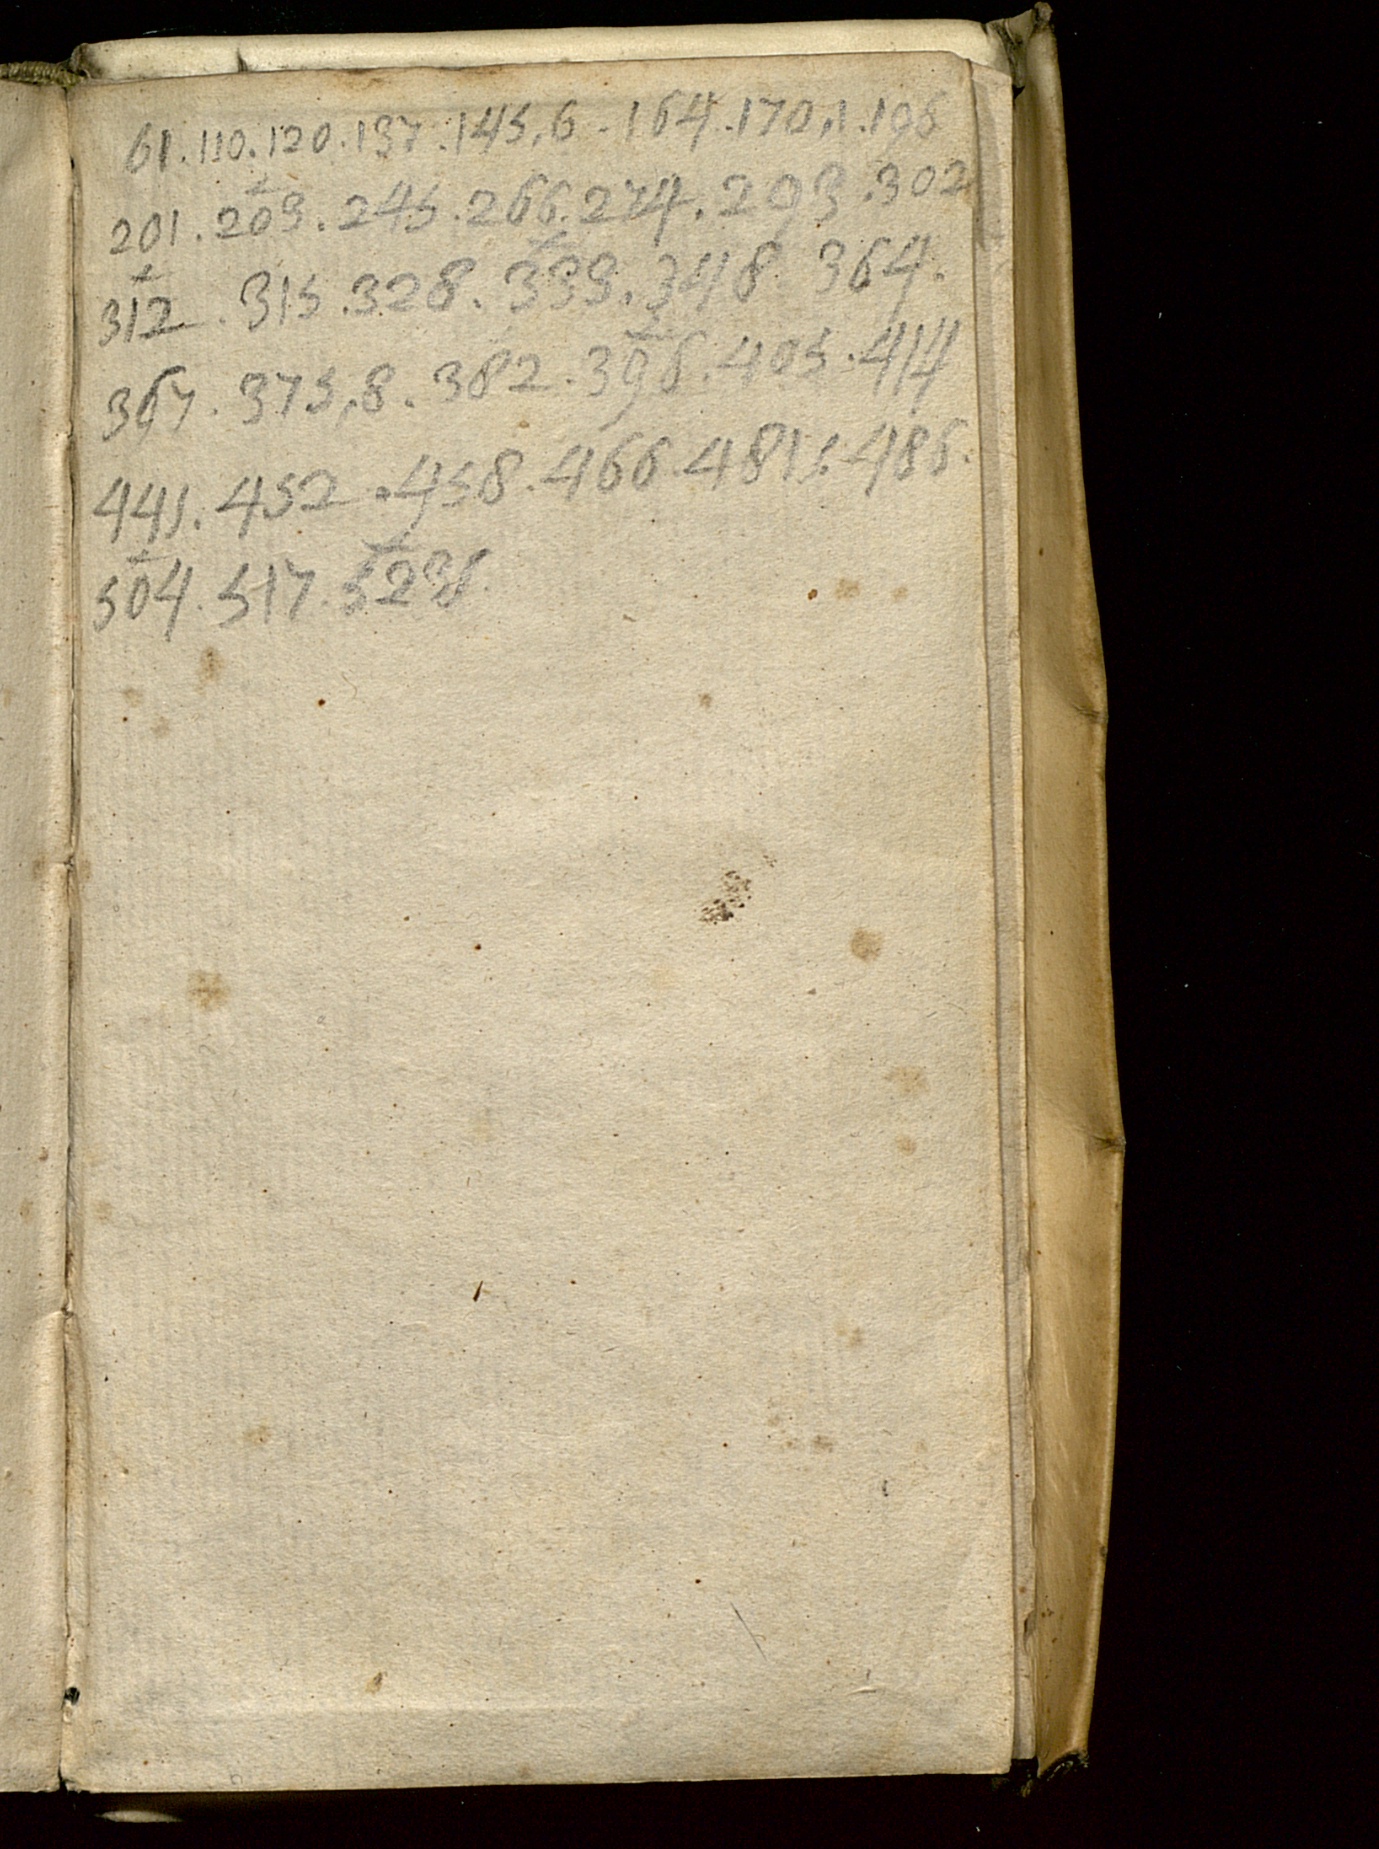 61. 110. 120. 137. 145,6. 164. 170,1. 195
201. 203. 245. 266. 274. 293. 302
312. 315. 328. 333. 348. 364.
367. 375,8. 382. 396. 405. 414
445. 452. 458. 466. 481,5. 486.
504. 517. 5235.